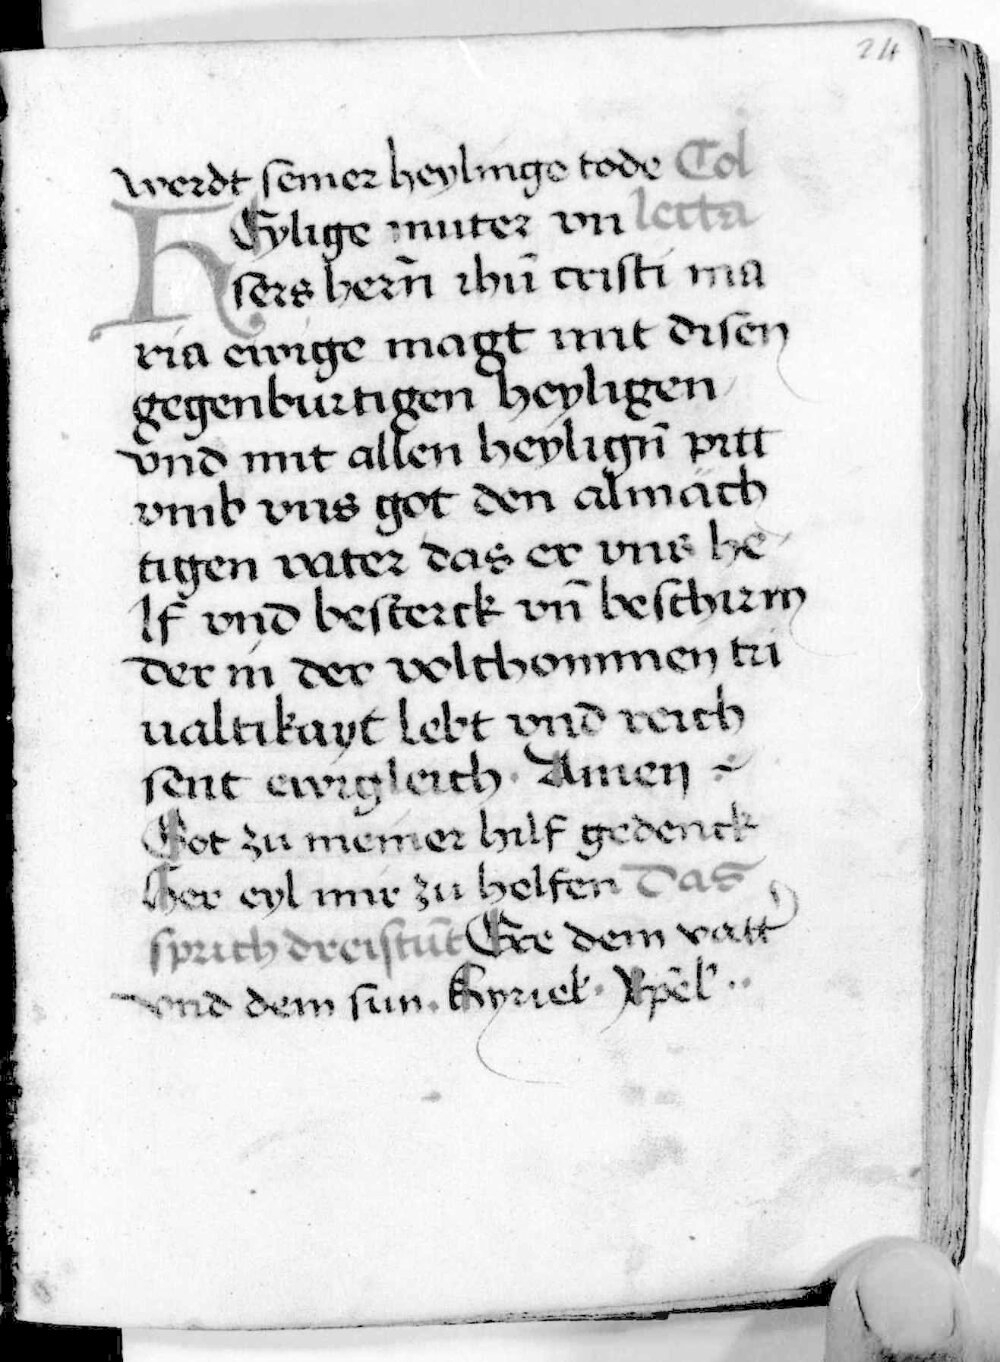 24
werdt seiner heylinge tode Col
HEylige muter vn lecta
sers hern̄ ihū cristi ma
ria ewige magt mit disen
gegenburtigen heyligen
vnd mit allen heylign̄ pitt
vmb vns got den almäch
tigen vater das er vns he
lf vnd besterck vn̄ beschirm
der in der volchommen tri
ualtikayt lebt vnd reich
sent ewigleich · Amen
Got zu meiner hilf gedenck
Her eyl mir zu helfen Das
sprich dreistūt Ere dem vatt
vnd dem sun · Kyriel · Xp̄el ··